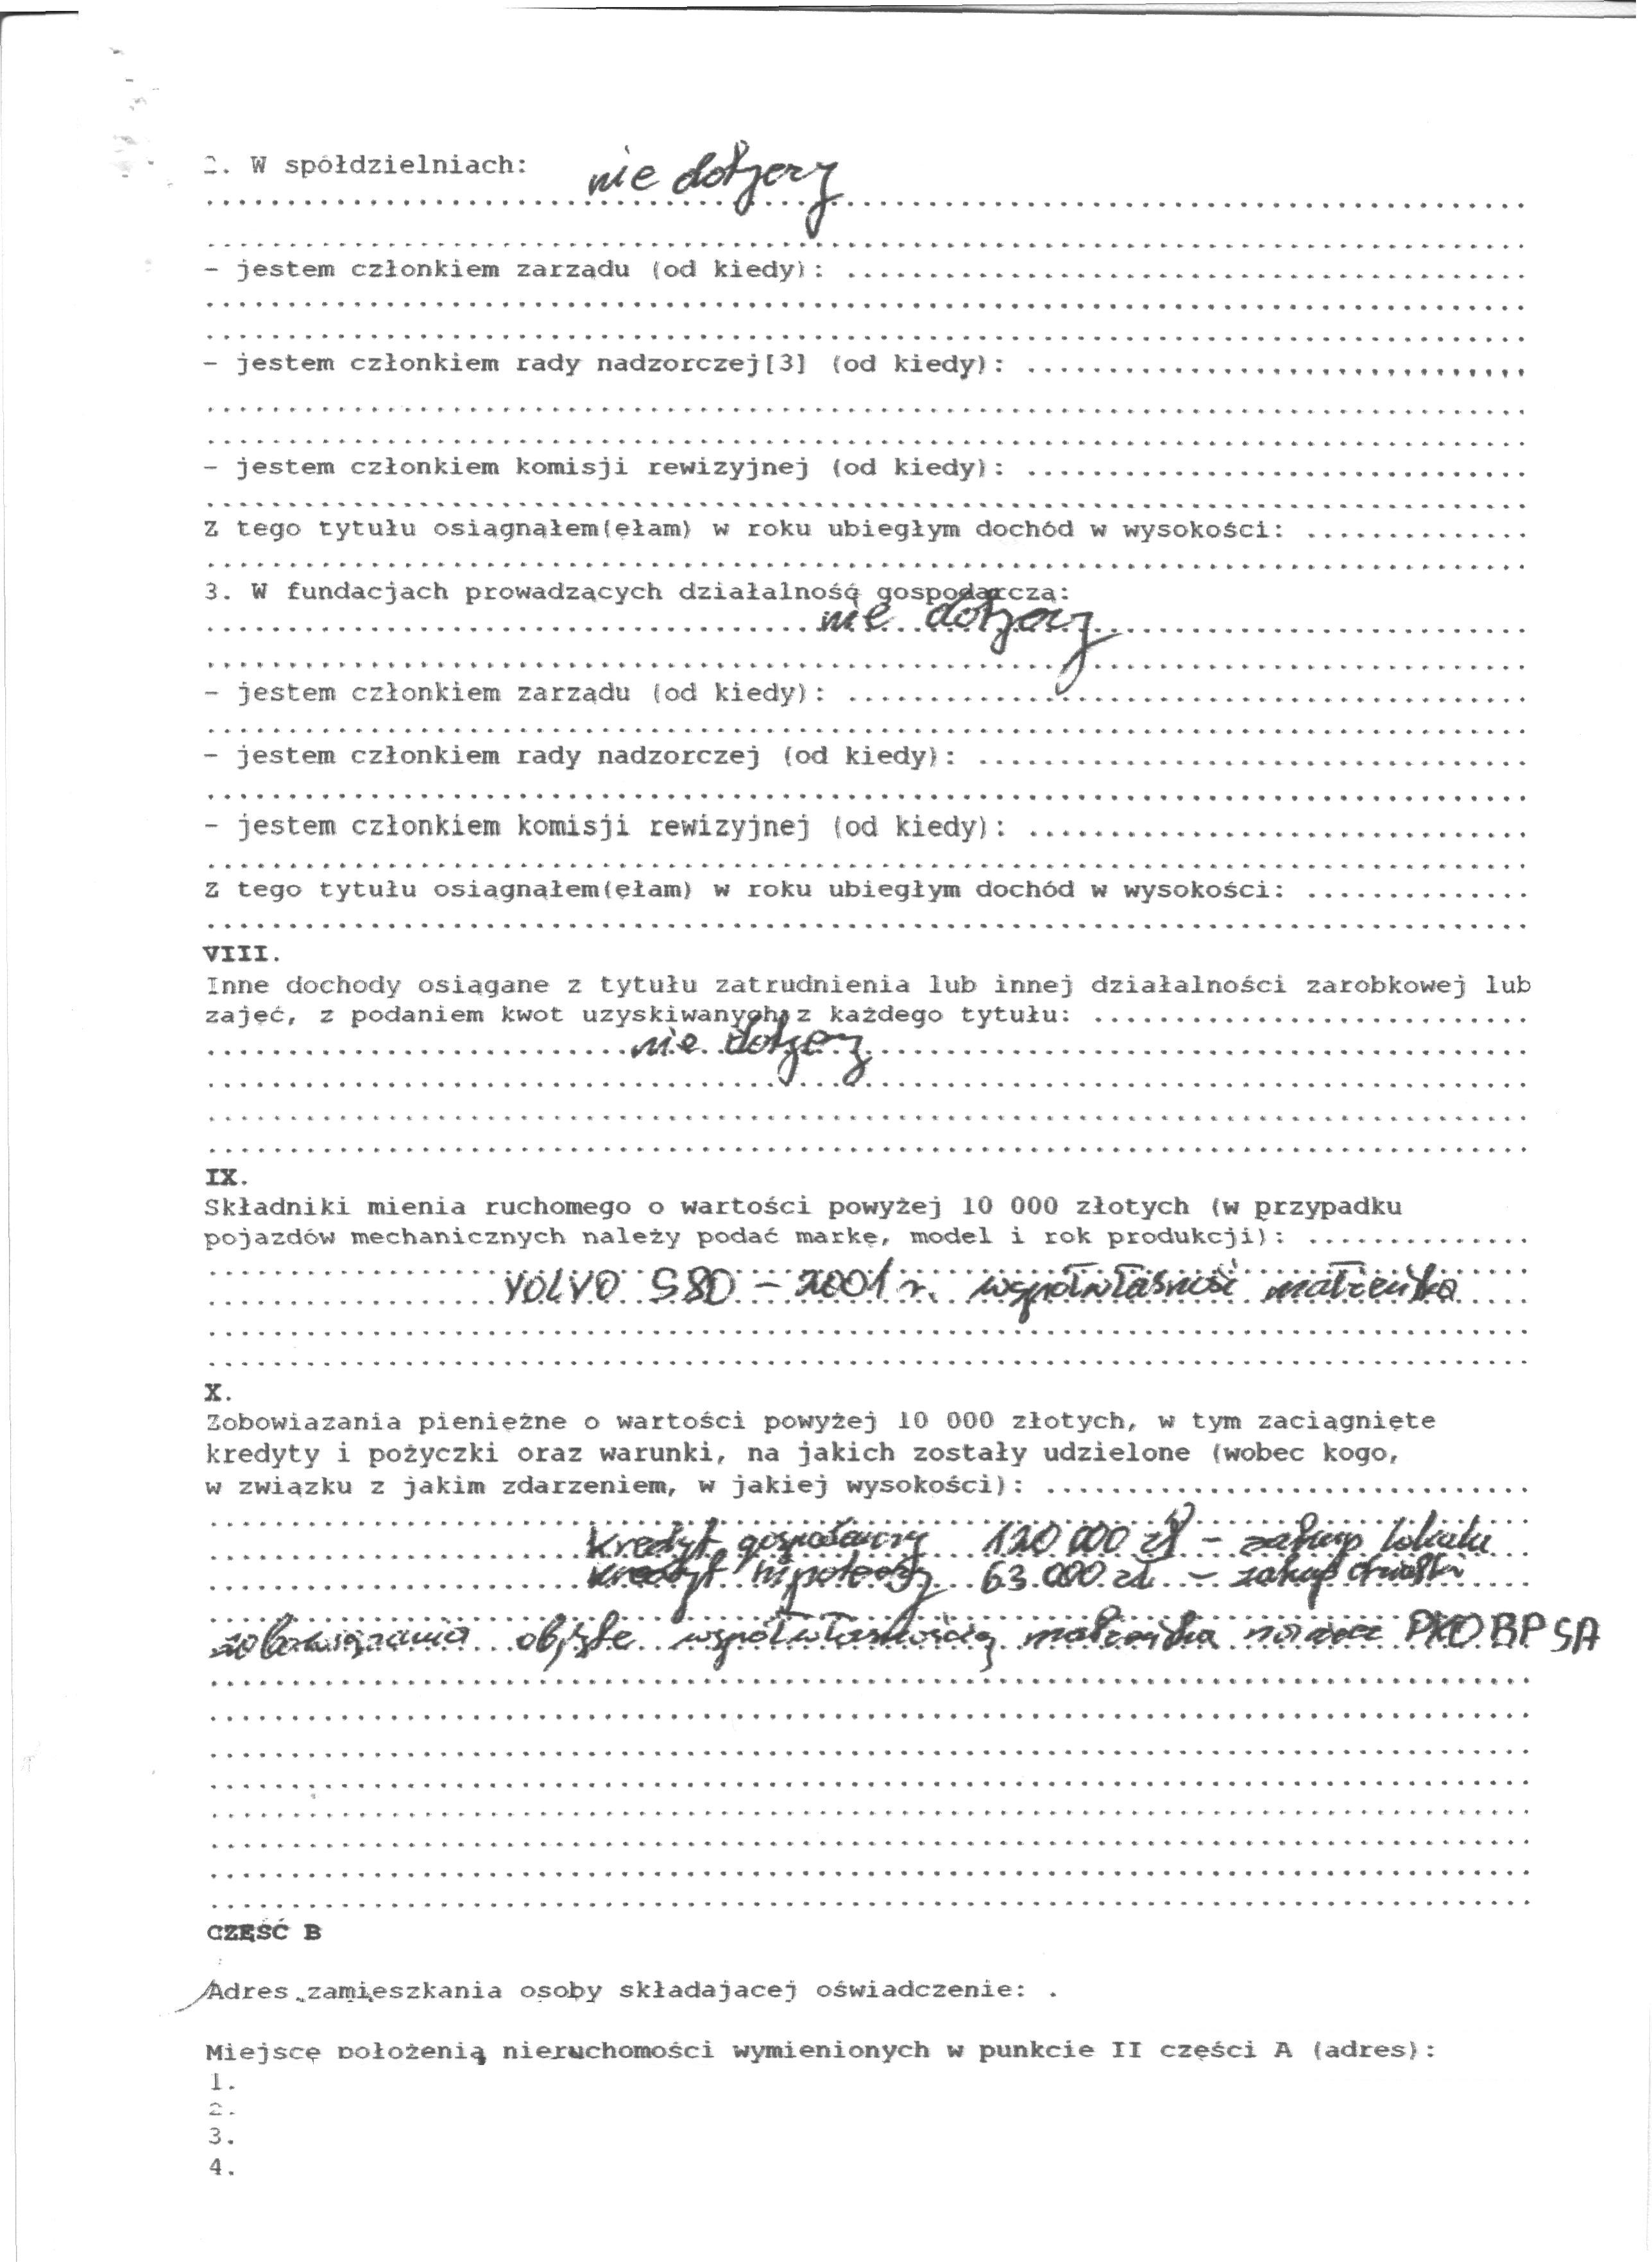 2. W spółdzielniach: nie dotyczy
- jestem członkiem zarządu (od kiedy): ........
- jestem członkiem rady nadzorczej[3] (od kiedy): ........
- jestem członkiem komisji rewizyjnej (od kiedy): ........
Z tego tytułu osiągnąłem(ęłam) w roku ubiegłym dochód w wysokości: ........
3. W fundacjach prowadzących działalność gospodarczą:
nie dotyczy
- jestem członkiem zarządu (od kiedy): ........
- jestem członkiem rady nadzorczej (od kiedy): ........
- jestem członkiem komisji rewizyjnej (od kiedy): ........
Z tego tytułu osiągnąłem(ęłam) w roku ubiegłym dochód w wysokości: ........
VIII.
Inne dochody osiągane z tytułu zatrudnienia lub innej działalności zarobkowej lub
zajęć, z podaniem kwot uzyskiwanych z każdego tytułu: ........
nie dotyczy
IX.
Składniki mienia ruchomego o wartości powyżej 10 000 złotych (w przypadku
pojazdów mechanicznych należy podać markę, model i rok produkcji): ........
VOLVO S80 - 2001 r. współwłasność małżeńska
X.
Zobowiązania pieniężne o wartości powyżej 10 000 złotych, w tym zaciągnięte
kredyty i pożyczki oraz warunki, na jakich zostały udzielone (wobec kogo,
w związku z jakim zdarzeniem, w jakiej wysokości): ........
kredyt gospodarczy 120 000 zł - zakup lokalu
kredyt hipoteczny 63.000 zł - zakup działki
zobowiązania objęte współwłasnością małżeńską PKO BP SA
CZĘŚĆ B
Adres zamieszkania osoby składającej oświadczenie: .
Miejsce położenia nieruchomości wymienionych w punkcie II części A (adres):
1.
2.
3.
4.